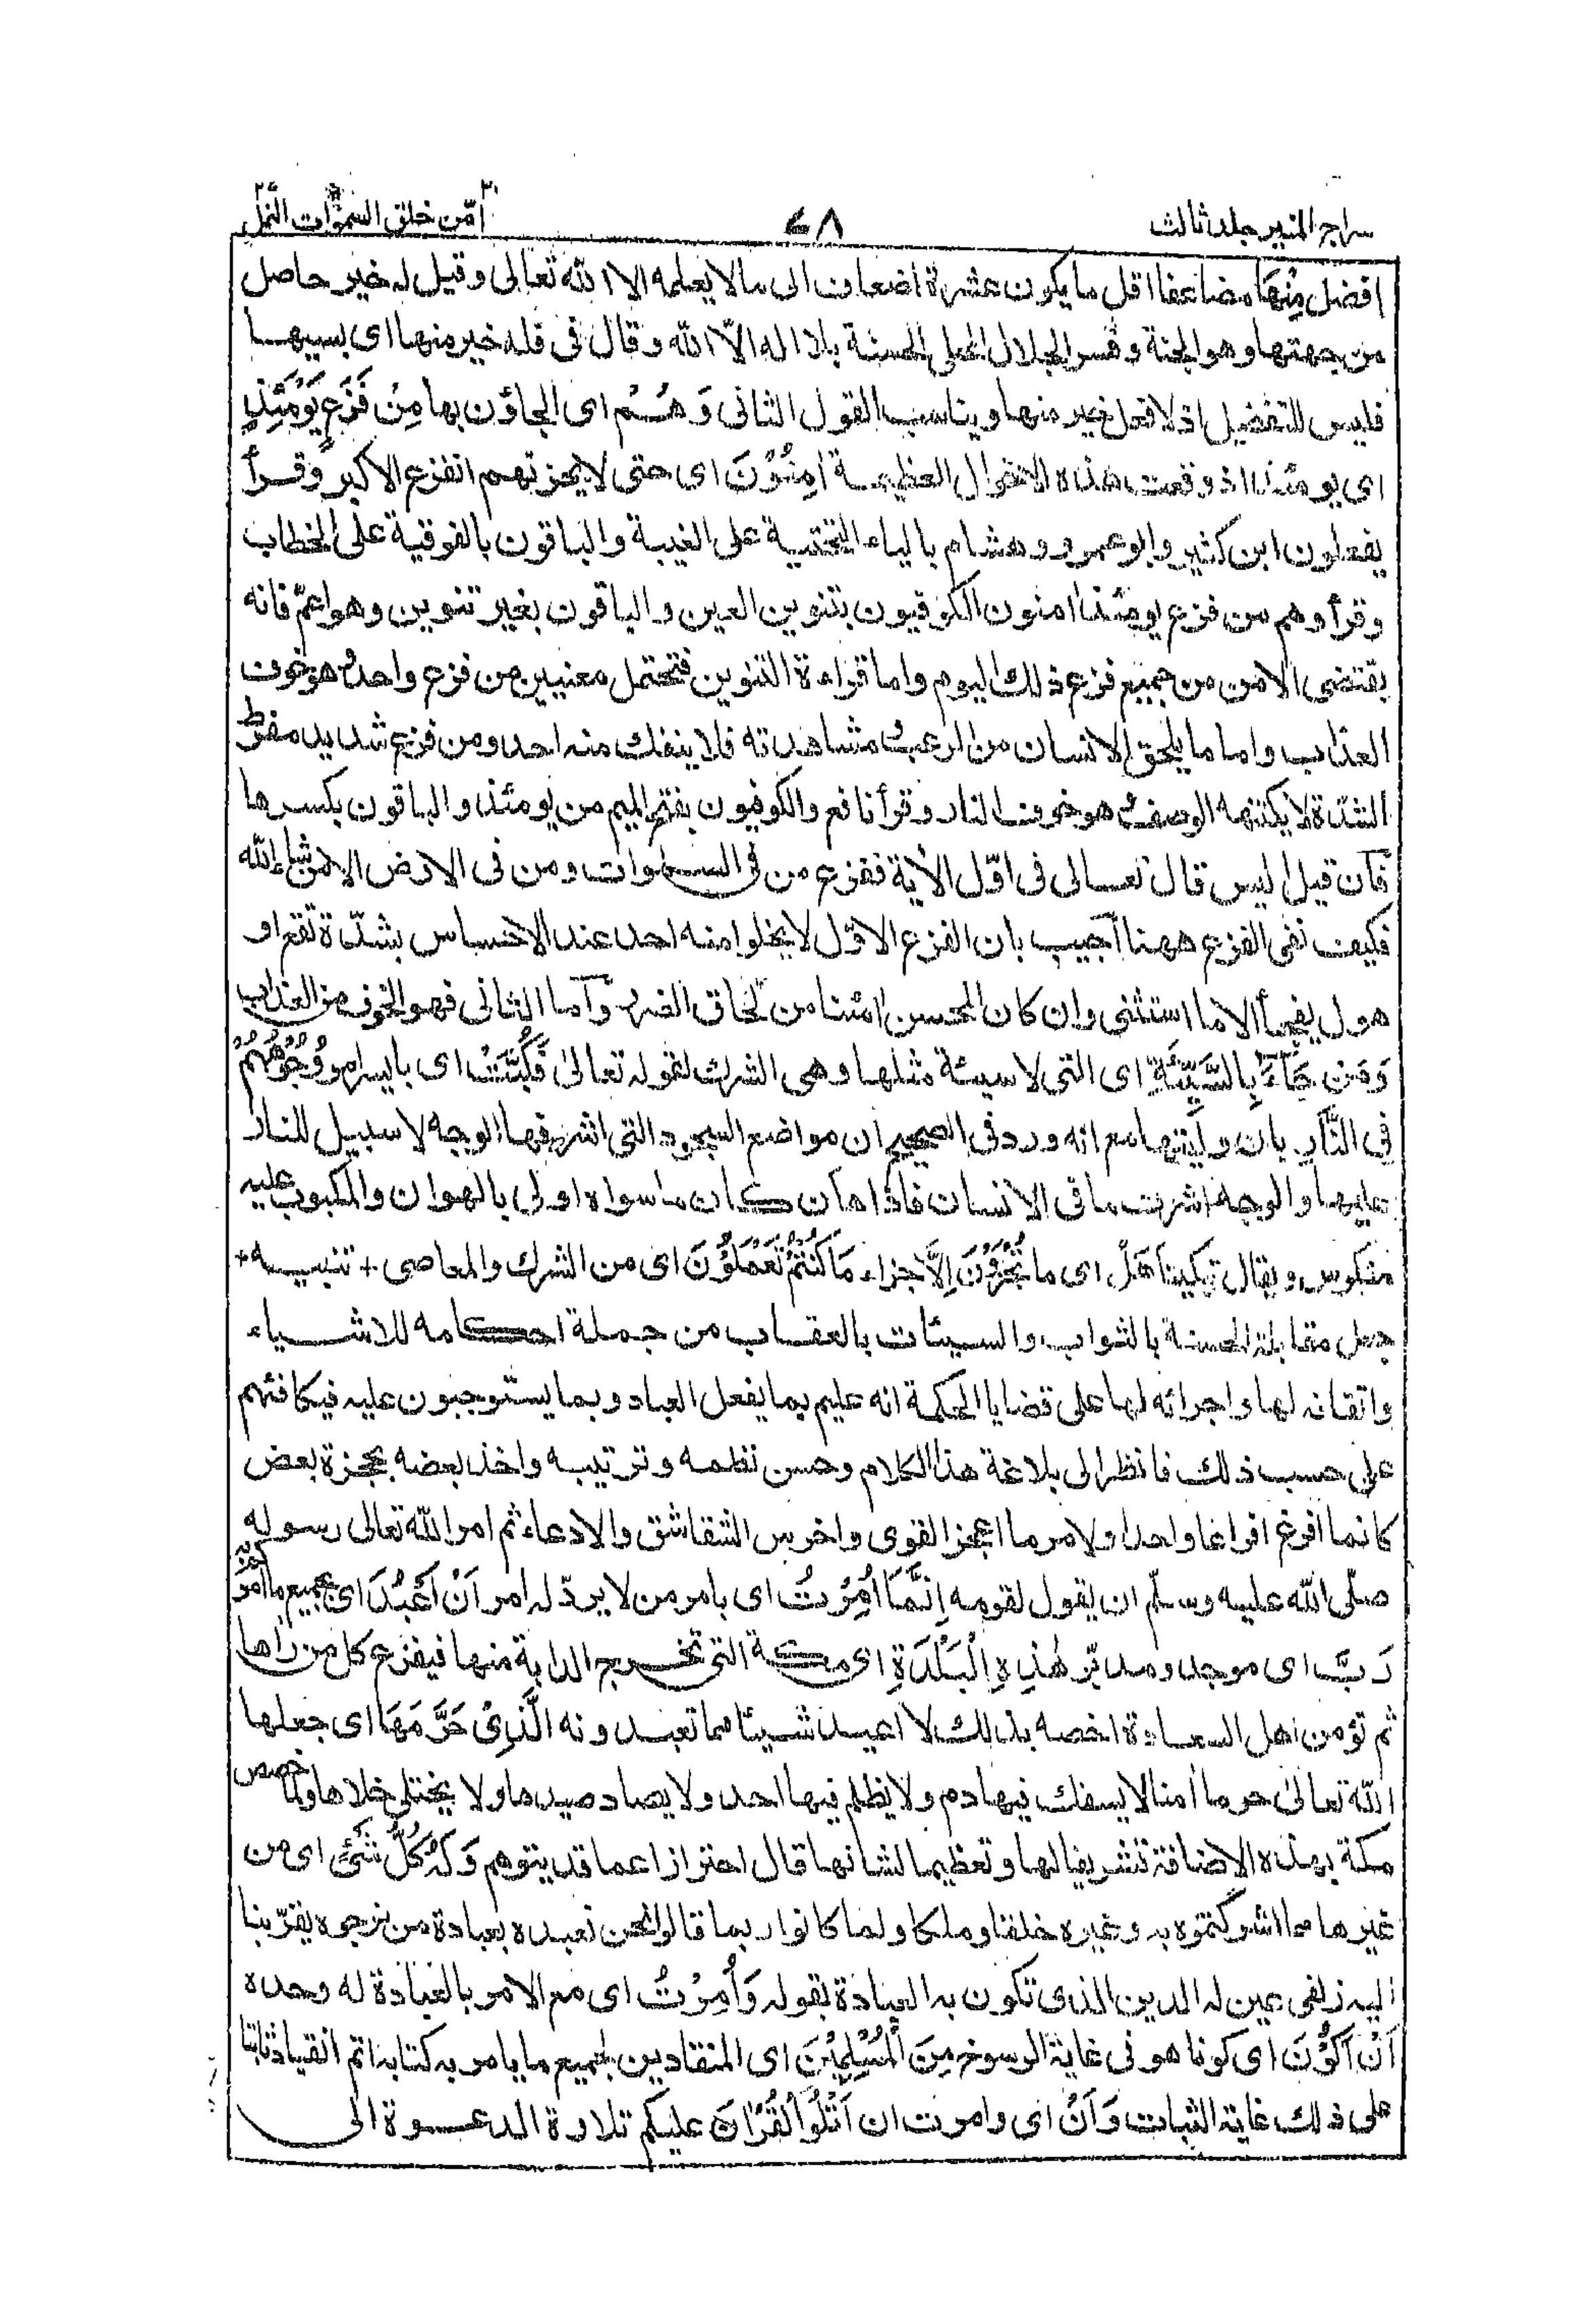 سراج المنير جلد ثالث
٧٨
امّن خلق السمٰوات النمل
افضل مِنْهَا مضاعفا اقل ما يكون عشرة اضعاف الى ما لا يعلمه الا الله تعالى وقيل له خير حاصل
من جهتها وهو الجنة وفسر الجلال المحلى الحسنة بلا اله الّا الله وقال فى قله خير منها اى بسببها
فليس للتفضيل اذ لا فعل خير منها ويناسب القول الثانى وَهُمْ اى الجاؤن بها مِنْ فَزَعٍ يَوْمَئِذٍ
اى يومئذ اذ وقعت هذه الاحوال العظيمة اٰمِنُوْنَ اى حتى لا يحزنهم الفزع الاكبر وقرأ
يفعلون ابن كثير وابو عمرو وهشام بالياء التحتية على الغيبة والباقون بالفوقية على الخطاب
وقرأ وهم من فزع يومئذ امنون الكوفيون بتنوين العين والباقون بغير تنوين وهو اعمّ فانه
يقتضى الامن من جميع فزع ذلك اليوم واما قراءة التنوين فتحتمل معنيين من فزع واحد وهو خوف
العذاب واما ما يلحق الانسان من الرعب ومشاهدته فلا ينفك منه احد ومن فزع شديد مفرط
الشدّة لا يكتنهه الوصف وهو خوف النار وقرأ نافع والكوفيون بفتح الميم من يومئذ والباقون بكسرها
فآن قيل اليس قال تعالى فى اوّل الاٰية ففزع من فى السمٰوات ومن فى الارض الا من شاء الله
فكيف نفى الفزع ههنا آجيب بان الفزع الاوّل لا يخلو منه احد عند الاحساس بشدّة تقع او
هول يفجأ الا ما استثنى وان كان المحسن اٰمنا من لحاق الضرر وآما الثانى فهو الخوف من العذاب
وَمَنْ جَآءَ بِالسَّيِّئَةِ اى التى لا سيئة مثلها وهى الشرك لقوله تعالىٰ فَكُبَّتْ اى بايسر امر وُجُوْهُهُمْ
فِى النَّارِ بان وليتها مع انه ورد فى الصحيح ان مواضع السجود التى اشرفها الوجه لا سبيل للنار
عليها والوجه اشرف ما فى الانسان فاذا هان كان ما سواه اولى بالهوان والمكبوب عليه
منكوس ويقال تبكيتا هَلْ اى ما تُجْزَوْنَ اِلَّا جزاء مَا كُنْتُمْ تَعْمَلُوْنَ اى من الشرك والمعاصى + تنبيه +
جعل مقابلة الحسنة بالثواب والسيئات بالعقاب من جملة احكامه للاشياء
واتقانه لها واجرائه لها على قضايا الحكمة انه عليم بما يفعل العباد وبما يستوجبون عليه فيكافئهم
على حسب ذلك فانظر الى بلاغة هذا الكلام وحسن نظمه وترتيبه واخذ بعضه بحجزة بعض
كانما افرغ افراغا واحدا ولامر ما اعجز القوى واخرس الشقاشق والادعاء ثم امر الله تعالى رسوله
صلّى الله عليه وسلّم ان يقول لقومه اِنَّمَا اُمِرْتُ اى بامر من لا يردّ له امر اَنْ اَعْبُدَ اى بجميع ما امر
رَبَّ اى موجد ومدبّر هٰذِهِ الْبَلْدَةِ اى مكة التى تخرج الدابة منها فيفزع كل من راٰها
ثم تؤمن اهل السعادة اخصه بذلك لا اعبد شيئا مما تعبدونه الَّذِىْ حَرَّمَهَا اى جعلها
الله تعالىٰ حرما اٰمنا لا يسفك فيها دم ولا يظلم فيها احد ولا يصاد صيدها ولا يختلى خلاها ولما خصص
مكة بهذه الاضافة تشريفا لها وتعظيما لشانها قال احترازا عما قد يتوهم وَلَهٗ كُلُّ شَىْءٍ اى من
غيرها مما اشركتموه به وغيره خلقا وملكا ولما كانوا ربما قالوا نحن نعبده بعبادة من نرجوه يقرّبنا
اليه زلفى عين له الدين الذى تكون به العبادة بقوله وَاُمِرْتُ اى مع الامر بالعبادة له وحده
اَنْ اَكُوْنَ اى كونا هو فى غاية الرسوخ مِنَ الْمُسْلِمِيْنَ اى المنقادين لجميع ما يامر به كتابه اتم انقياد ثابتا
على ذلك غاية الثبات وَاَنْ اى وامرت ان اَتْلُوَا الْقُرْاٰنَ عليكم تلاوة الدعوة الى